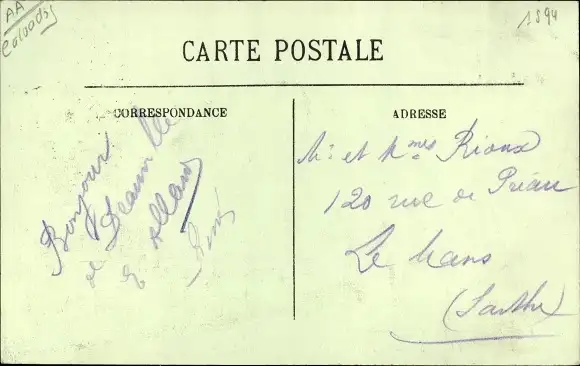 AA
Calvados
1894
CARTE POSTALE
CORRESPONDANCE
Bonjour
de Deauville
E Allard
ADRESSE
Mr et Mmes Rioux
120 rue de Préau
Le Mans
(Sarthe)